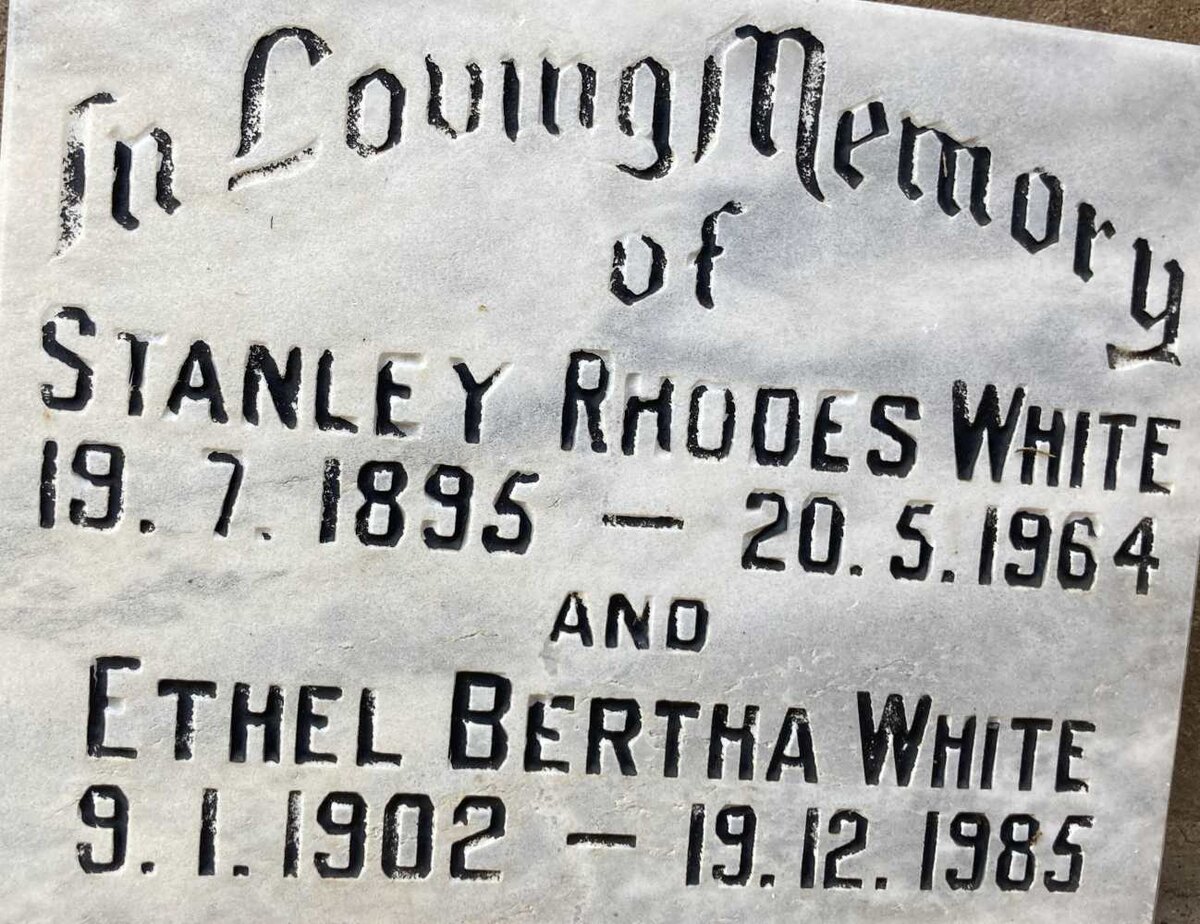 In Loving Memory
of
STANLEY RHODES WHITE
19.7.1895 — 20.5.1964
AND
ETHEL BERTHA WHITE
9.1.1902 — 19.12.1985